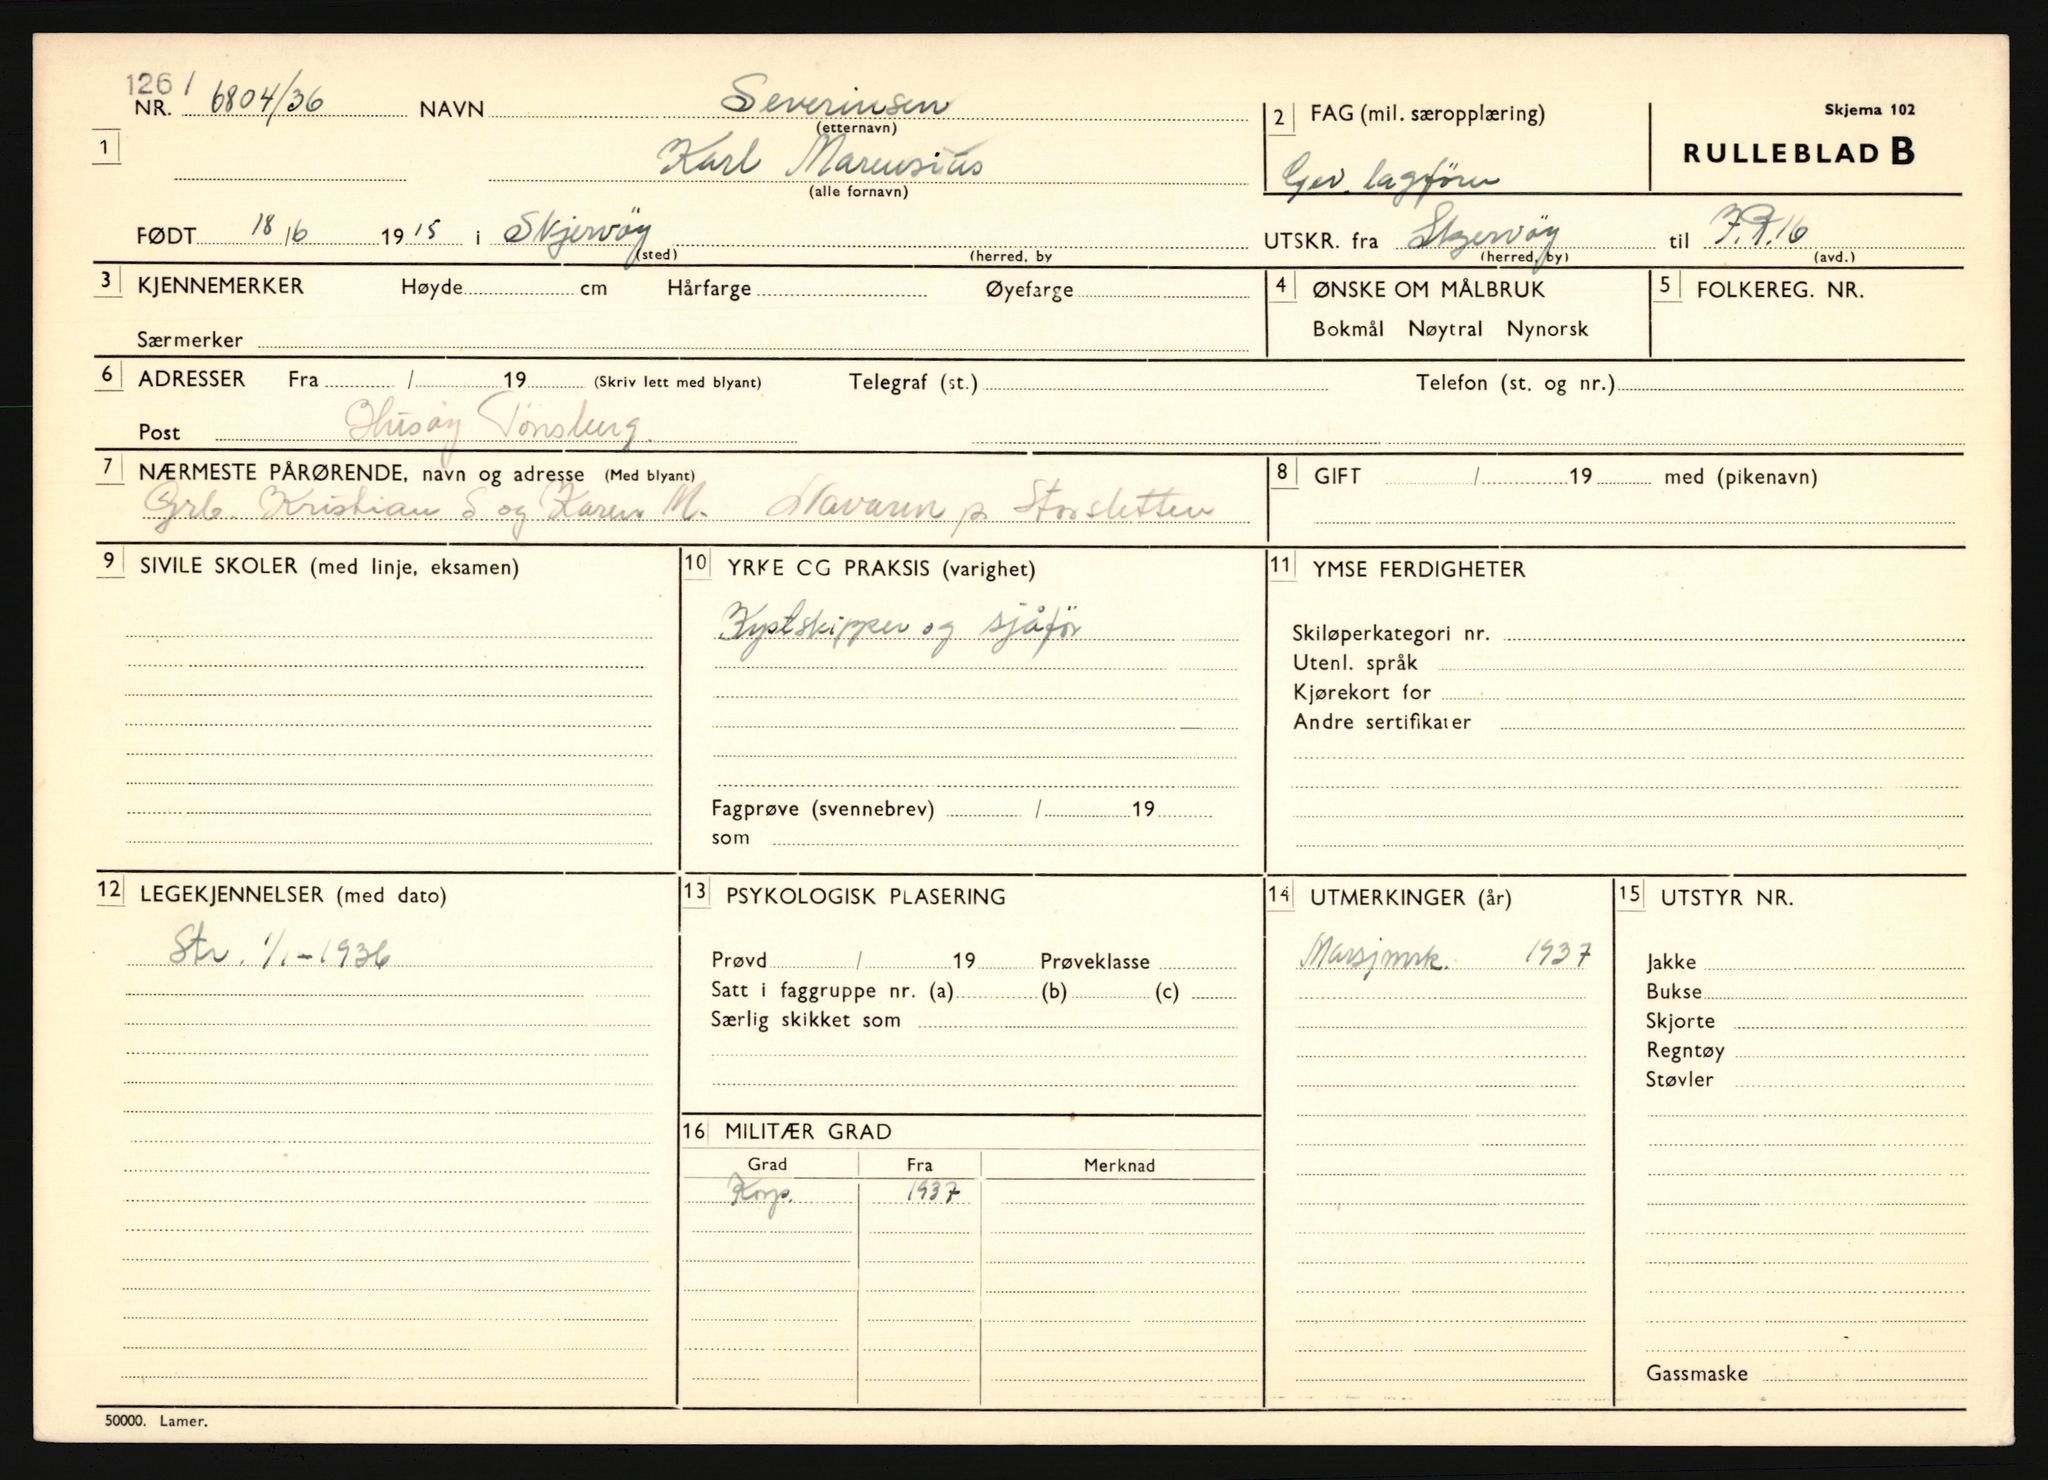 126 /
NR. 6804/36 NAVN Severinsen
(etternavn)
2 FAG (mil. særopplæring)
Skjema 102
RULLEBLAD B
1
Karl Marensius
(alle fornavn)
Gev. lagförer
FØDT 18/6 1915 i Skjervöy
(sted) (herred, by
UTSKR. fra Skjervöy til I.R.16
(herred, by) (avd.)
3 KJENNEMERKER Høyde cm Hårfarge Øyefarge
Særmerker
4 ØNSKE OM MÅLBRUK
Bokmål Nøytral Nynorsk
5 FOLKEREG. NR.
6 ADRESSER Fra / 19 (Skriv lett med blyant) Telegraf (st.) Telefon (st. og nr.)
Post Husøy Tønsberg.
7 NÆRMESTE PÅRØRENDE, navn og adresse (Med blyant)
Grb. Kristian S og Karen M. Navaren p. Storsletten
8 GIFT / 19 med (pikenavn)
9 SIVILE SKOLER (med linje, eksamen)
10 YRKE CG PRAKSIS (varighet)
Kystskipper og sjåför
Fagprøve (svennebrev) / 19
som
11 YMSE FERDIGHETER
Skiløperkategori nr.
Utenl. språk
Kjørekort for
Andre sertifikater
12 LEGEKJENNELSER (med dato)
Str. 1/1-1936
13 PSYKOLOGISK PLASERING
Prøvd / 19 Prøveklasse
Satt i faggruppe nr. (a) (b) (c)
Særlig skikket som
14 UTMERKINGER (år)
Marsjmrk. 1937
15 UTSTYR NR.
Jakke
Bukse
Skjorte
Regntøy
Støvler
Gassmaske
16 MILITÆR GRAD
Grad Fra Merknad
Korp. 1937
50000. Lamer.